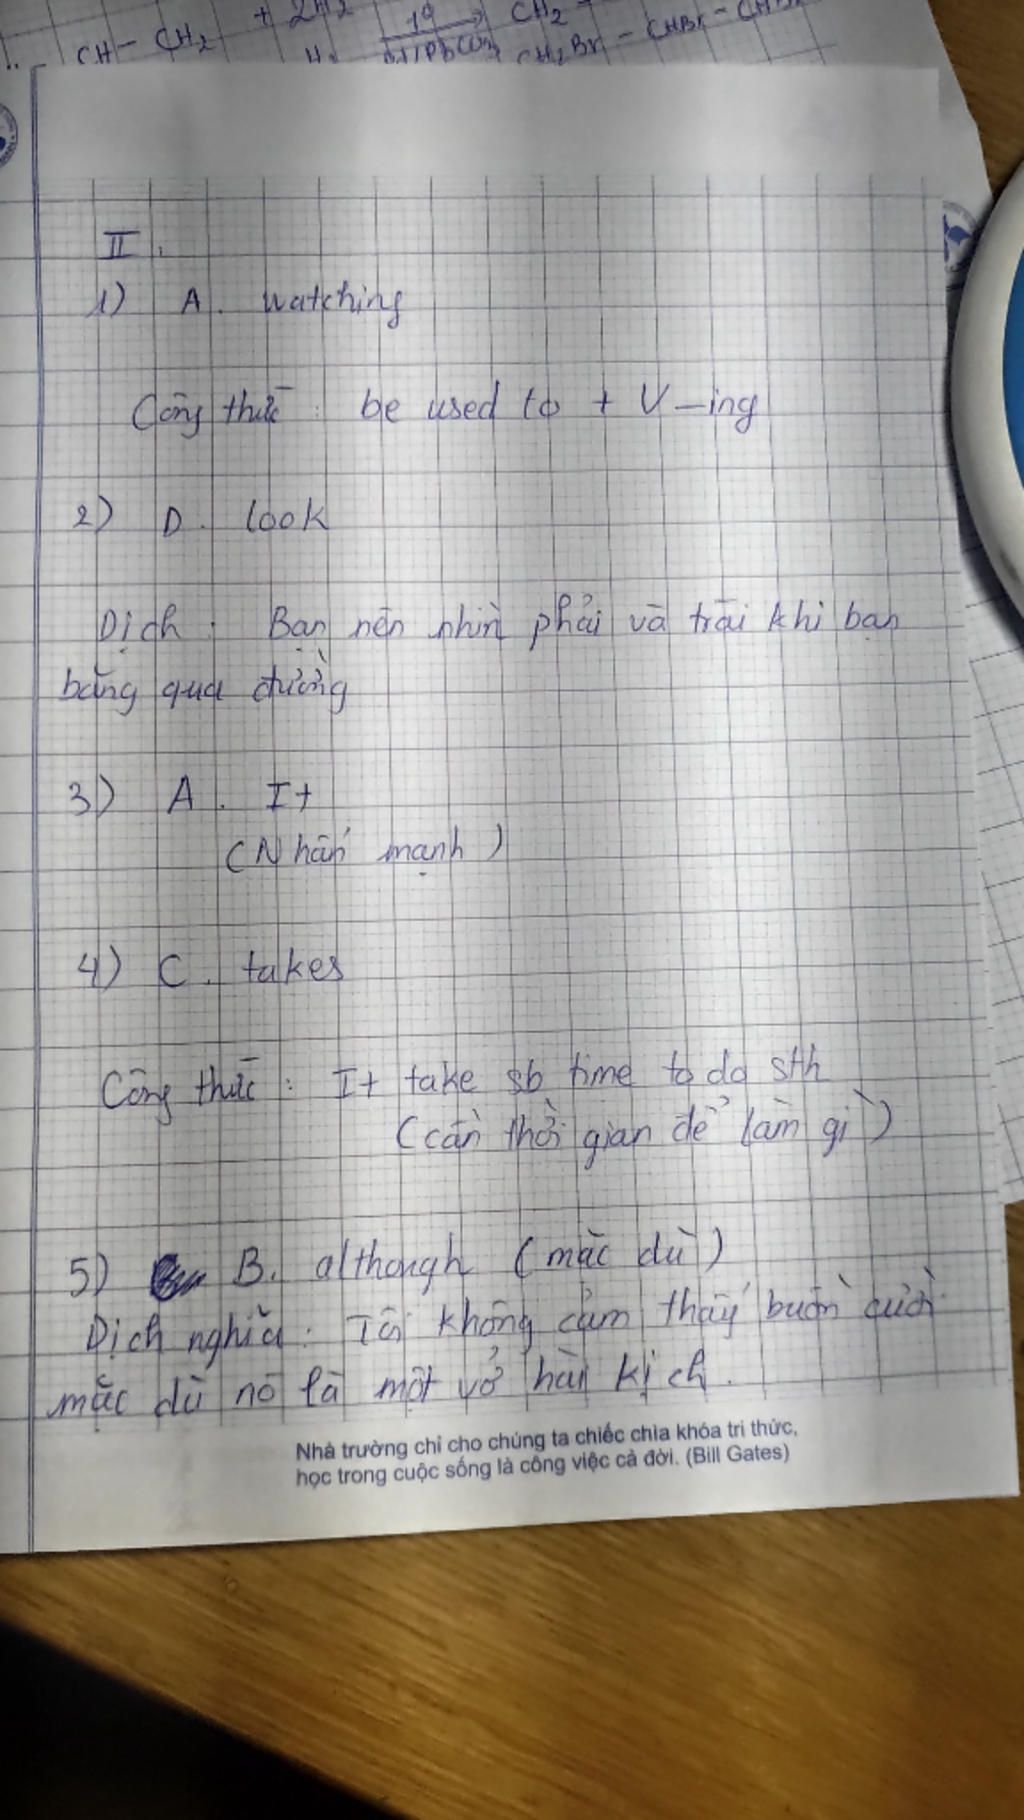 CH - CH2 + 2H2 CH2
CH2Br - CHBr -
II.
1) A. watching
Công thức : be used to + V-ing
2) D. look
Dịch : Bạn nên nhìn phải và trái khi bạn
băng qua đường
3) A. It
(Nhấn mạnh)
4) C. takes
Công thức : It take sb time to do sth
(cần thời gian để làm gì)
5) B. although (mặc dù)
Dịch nghĩa : Tôi không cảm thấy buồn cười
mặc dù nó là một vở hài kịch.
Nhà trường chỉ cho chúng ta chiếc chìa khóa tri thức,
học trong cuộc sống là công việc cả đời. (Bill Gates)